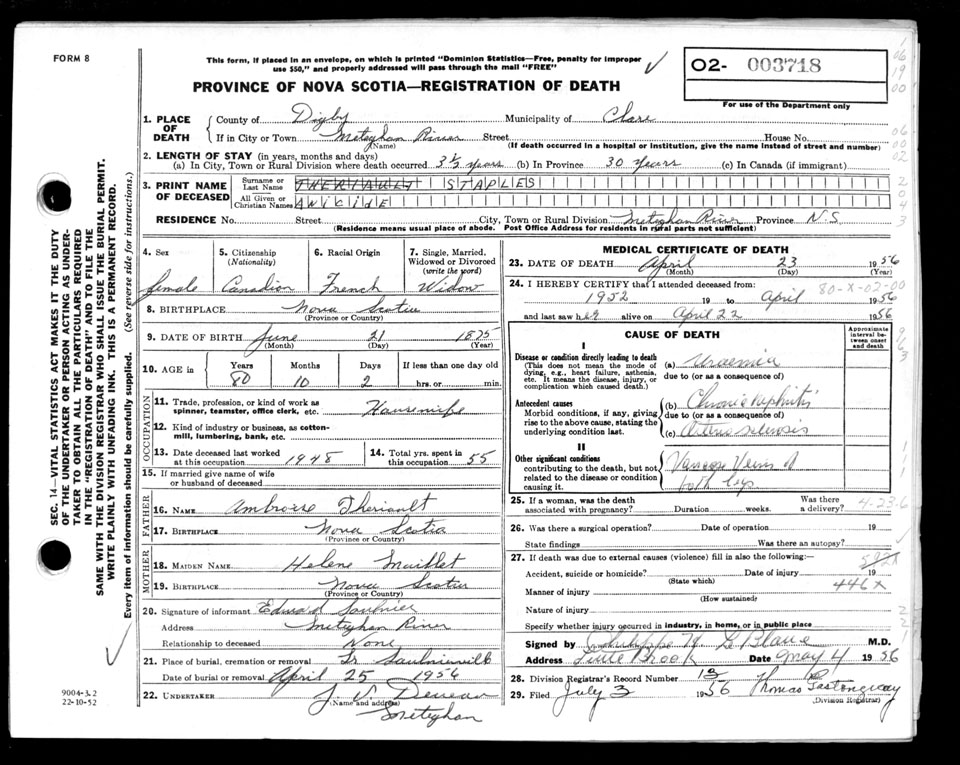 FORM 8
This form, if placed in an envelope, on which is printed "Dominion Statistics—Free, penalty for improper
use $50," and properly addressed will pass through the mail "FREE"
PROVINCE OF NOVA SCOTIA—REGISTRATION OF DEATH
O2- 003718
For use of the Department only
1. PLACE OF DEATH
County of Digby Municipality of Clare
If in City or Town Meteghan River Street House No.
(Name) (If death occurred in a hospital or institution, give the name instead of street and number)
2. LENGTH OF STAY (in years, months and days)
(a) In City, Town or Rural Division where death occurred 3½ years (b) In Province 30 years (c) In Canada (if immigrant)
3. PRINT NAME OF DECEASED
Surname or Last Name THERIAULT STAPLES
All Given or Christian Names ANICIDE
RESIDENCE No. Street City, Town or Rural Division Meteghan River Province N.S.
(Residence means usual place of abode. Post Office Address for residents in rural parts not sufficient)
4. Sex female
5. Citizenship (Nationality) Canadian
6. Racial Origin French
7. Single, Married, Widowed or Divorced (write the word) Widow
8. BIRTHPLACE Nova Scotia
(Province or Country)
9. DATE OF BIRTH June 21 1875
(Month) (Day) (Year)
10. AGE in Years Months Days If less than one day old
80 10 2 hrs. or min.
OCCUPATION
11. Trade, profession, or kind of work as spinner, teamster, office clerk, etc. Housewife
12. Kind of industry or business, as cotton-mill, lumbering, bank, etc.
13. Date deceased last worked at this occupation 1948
14. Total yrs. spent in this occupation 55
15. If married give name of wife or husband of deceased
FATHER
16. NAME Ambroise Theriault
17. BIRTHPLACE Nova Scotia
(Province or Country)
MOTHER
18. MAIDEN NAME Helene Maillet
19. BIRTHPLACE Nova Scotia
(Province or Country)
20. Signature of informant Edward Saulnier
Address Meteghan River
Relationship to deceased None
21. Place of burial, cremation or removal Saulnierville
Date of burial or removal April 25 1956
22. UNDERTAKER J. V. Deveau
(Name and address)
Meteghan
MEDICAL CERTIFICATE OF DEATH
23. DATE OF DEATH April 23 1956
(Month) (Day) (Year)
24. I HEREBY CERTIFY that I attended deceased from:
80-X-02-00
1952 19 to April 1956
and last saw her alive on April 22 1956
CAUSE OF DEATH
Approximate interval between onset and death
I
Disease or condition directly leading to death
(This does not mean the mode of dying, e.g., heart failure, asthenia, etc. It means the disease, injury, or complication which caused death.)
(a) Uraemia
due to (or as a consequence of)
Antecedent causes
Morbid conditions, if any, giving rise to the above cause, stating the underlying condition last.
(b) Chronic Nephritis
due to (or as a consequence of)
(c) Arterio sclerosis
II
Other significant conditions
contributing to the death, but not related to the disease or condition causing it.
Varicose Veins of
both legs
25. If a woman, was the death associated with pregnancy? Duration weeks. Was there a delivery?
4-23-6
26. Was there a surgical operation? Date of operation 19
State findings Was there an autopsy?
27. If death was due to external causes (violence) fill in also the following:—
592X
Accident, suicide or homicide? Date of injury 19
(State which)
446X
Manner of injury
(How sustained)
Nature of injury
Specify whether injury occurred in industry, in home, or in public place
Signed by Philippe H. LeBlanc M.D.
Address Little Brook Date May 4 1956
28. Division Registrar's Record Number 13
29. Filed July 3 1956 Thomas
(Division Registrar)
9004-3.2
22-10-52
SEC. 14—VITAL STATISTICS ACT MAKES IT THE DUTY
OF THE UNDERTAKER OR PERSON ACTING AS UNDER-
TAKER TO OBTAIN ALL THE PARTICULARS REQUIRED
IN THE "REGISTRATION OF DEATH" AND TO FILE THE
SAME WITH THE DIVISION REGISTRAR WHO SHALL ISSUE THE BURIAL PERMIT.
WRITE PLAINLY WITH UNFADING INK. THIS IS A PERMANENT RECORD.
Every item of information should be carefully supplied. (See reverse side for instructions.)